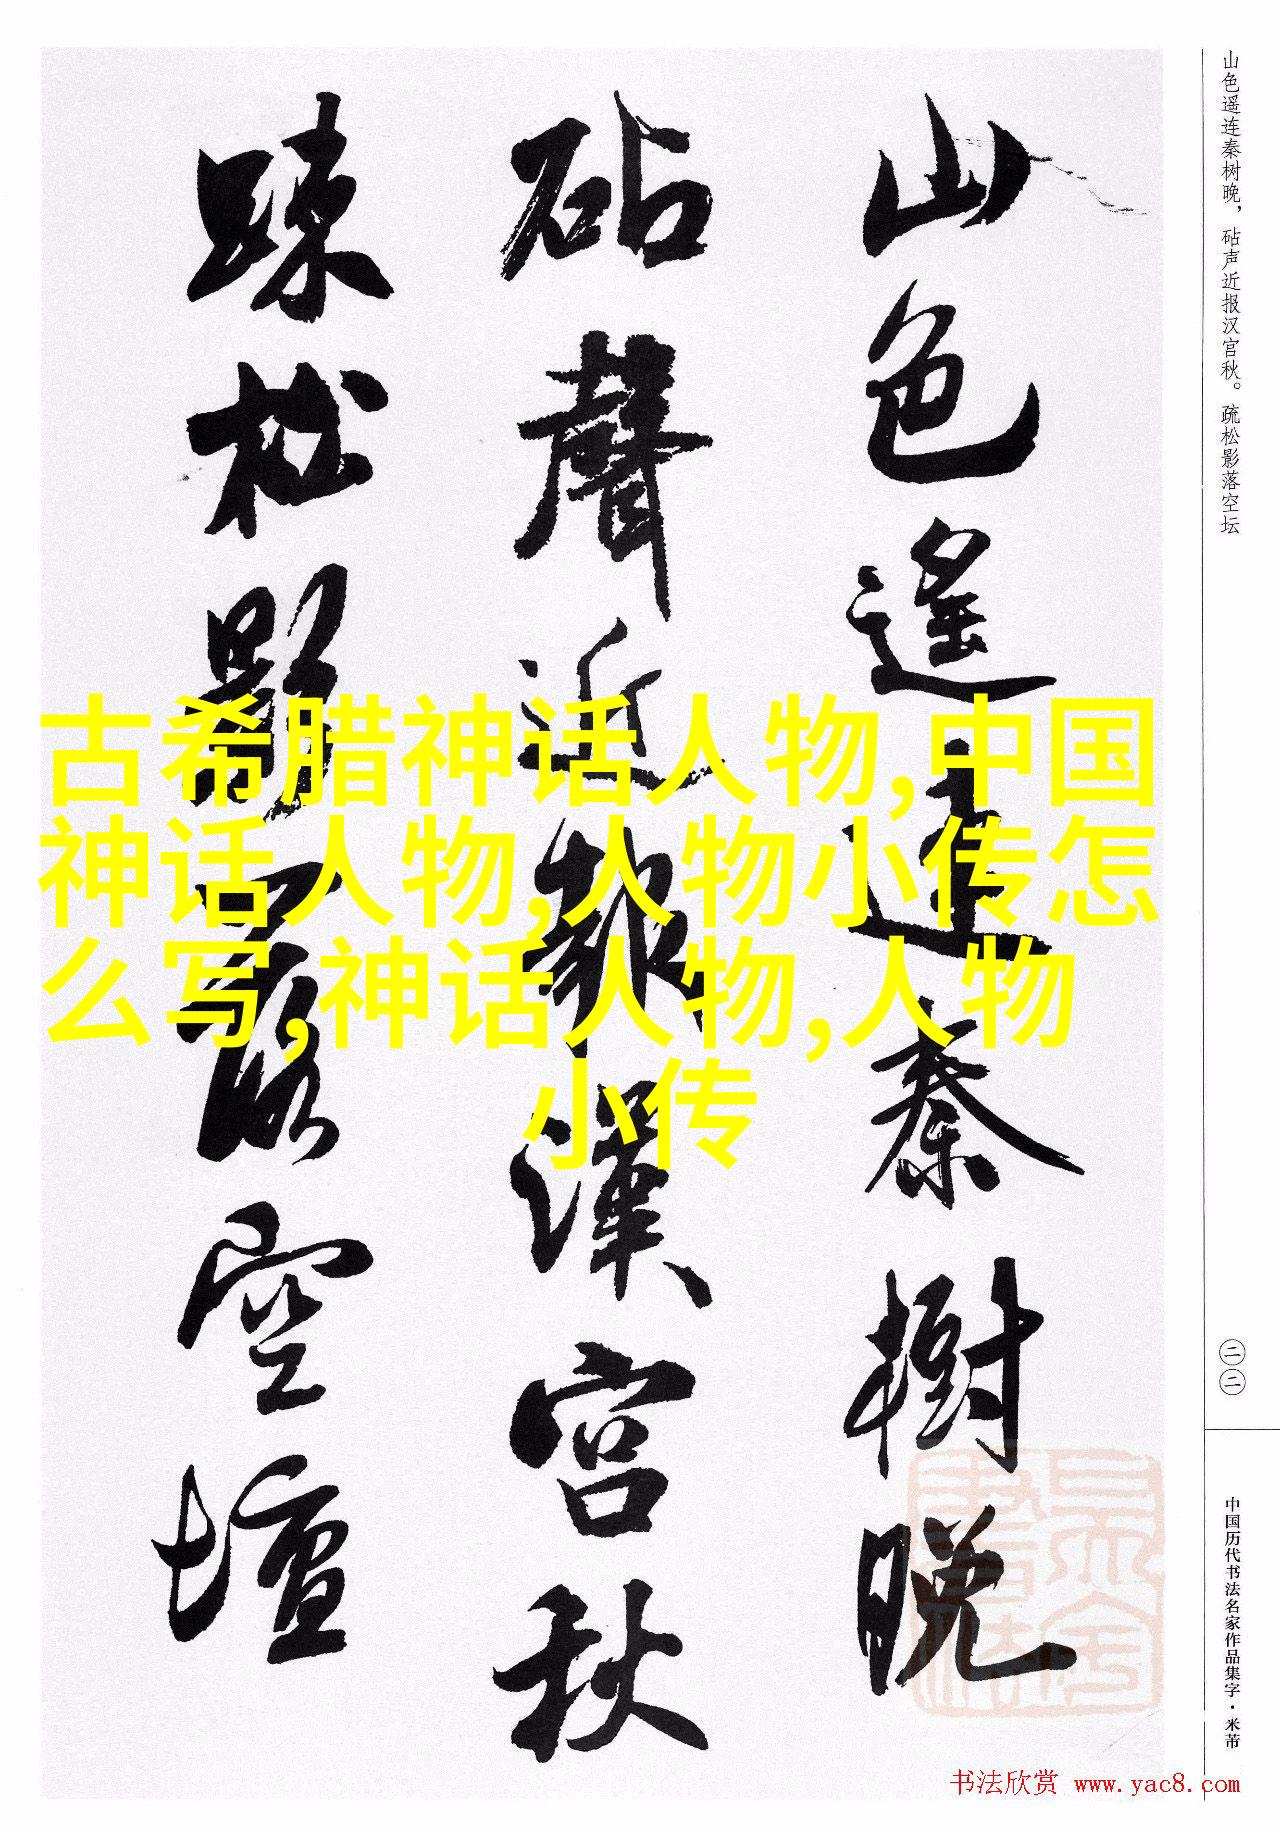 山色遥连秦树晚，砧声近报汉宫秋。疏松影落空坛
山色遙連秦樹晚
砧聲近報漢宮秋
踈松影落空壇
古希腊神话人物,中国
神话人物,人物小传怎
么写,神话人物,人物
小传
二二
中国历代书法名家作品集字·米芾
书法欣赏 www.yac8.com